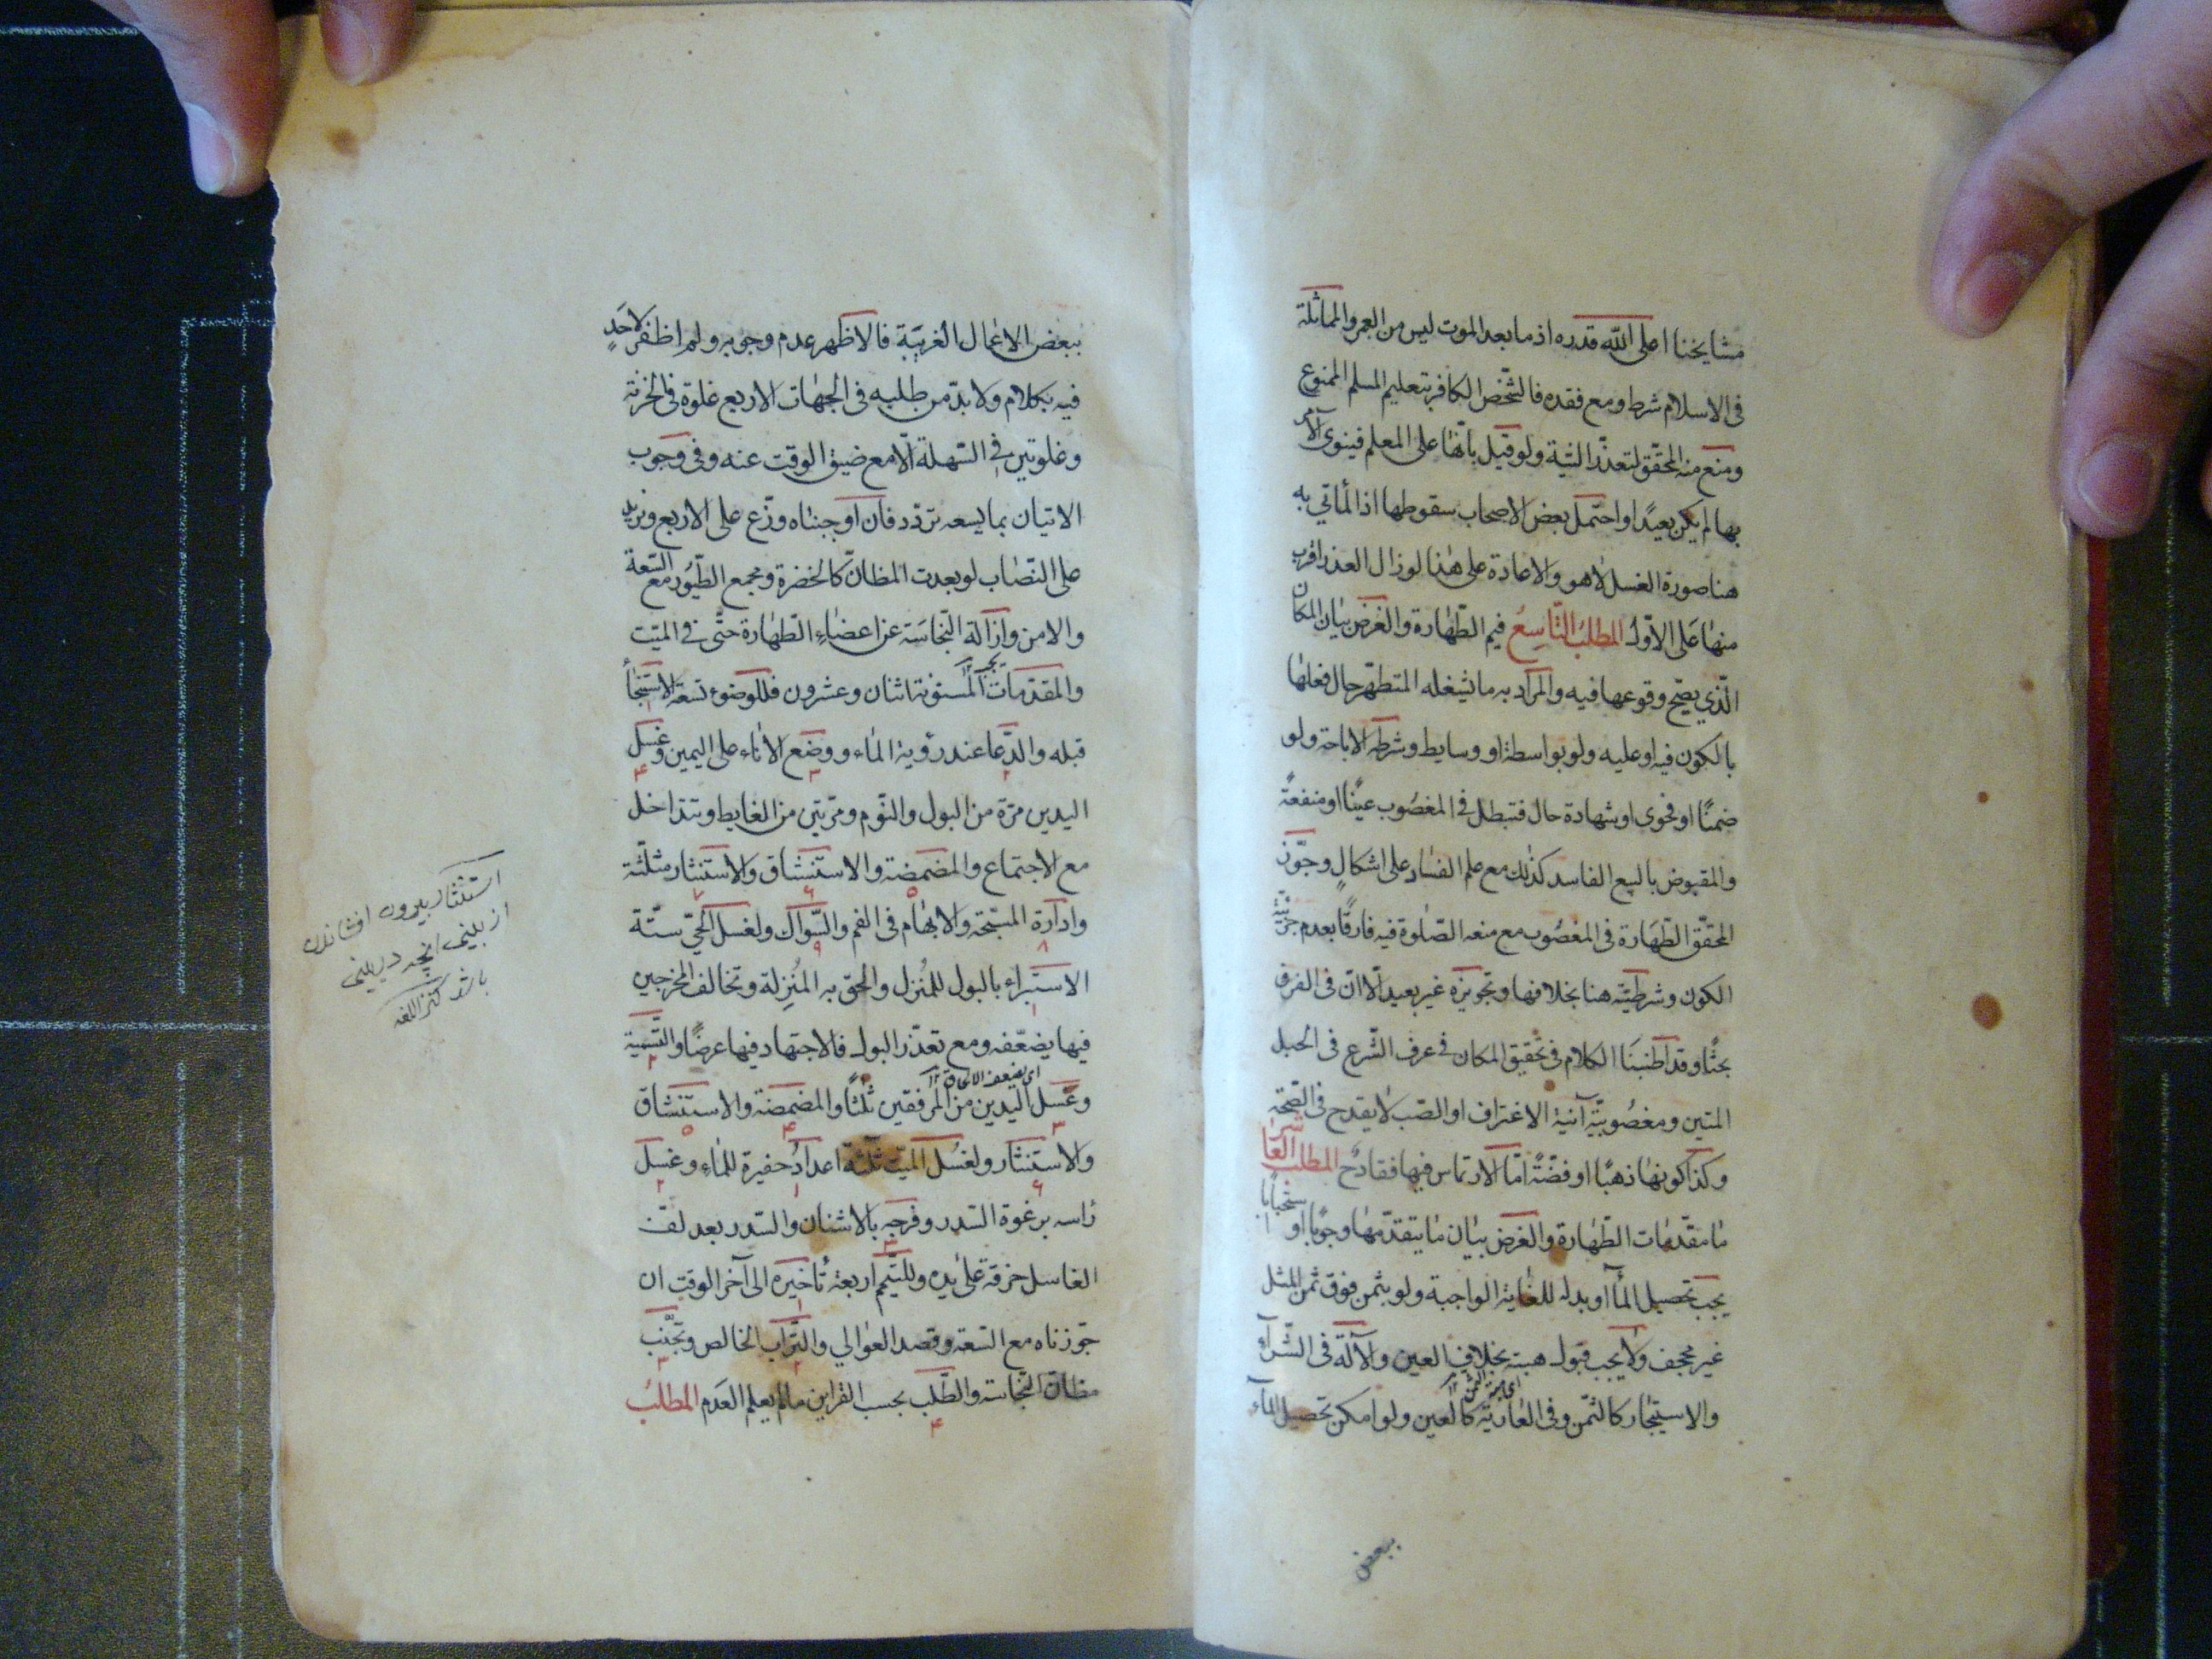 مشايخنا اعلى الله قدره اذ ما بعد الموت ليس من العمر والمماثلة
فى الاسلام شرط ومع فقده فالشخص الكافر بتعليم المسلم الممنوع
ومنع منه المحقّق لتعذّر النيّة ولو قيل بانّها على المعلم فينوى الآمر
بها لم يكن بعيدًا واحتمل بعض الاصحاب سقوطها اذ المأتي به
هنا صورة الغسل لا هو والاعادة على هذا لو زال العذر اقرب
منها على الاوّل المطلب التّاسع فيم الطّهارة والغرض بيان المكان
الّذي يصحّ وقوعها فيه والمراد به ما يشغله المتطهّر حال فعلها
بالكون فيه او عليه ولو بواسطة او وسايط وشرطه الاباحة ولو
ضمنًا او فحوى او شهادة حال فتبطل في المغصوب عينًا او منفعة
والمقبوض بالبيع الفاسد كذلك مع علم الفساد على اشكالٍ وجوّز
المحقّق الطّهارة فى المغصوب مع منعه الصّلوة فيه فارقًا بعدم جزئيّة
الكون وشرطيّته هنا بخلافها وتجويزه غير بعيد الّا انّ فى الفرق
بحثًا وقد اطنبنا الكلام فى تحقيق المكان فى عرف الشّرع فى الحبل
المتين ومغصوبيّة آنية الاغتراف او الصّب لا يقدح فى الصّحّة
وكذا كونها ذهبًا او فضّةً امّا الارتماس فيها فقادح المطلب العاشر
ما مقدّمات الطّهارة والغرض بيان ما يتقدّمها وجوبا او استحبابا
يجب تحصيل المآء او بدله للغاية الواجبة ولو بثمن فوق ثمن المثل
غير مجحف ولا يجب قبول هبته بخلاف العين والآلة فى الشّرآء
والاستيجار كالثمن وفى العارية كالعين ولو امكن تحصيل المآء
ببعض
ببعض الاعمال الغريبة فالاظهر عدم وجوبه ولم اظفر لاحدٍ
فيه بكلام ولا بدّ من طلبه فى الجهات الاربع غلوة فى الحزنة
وغلوتين في السّهلة الّا مع ضيق الوقت عنه وفى وجوب
الاتيان بما يسعه تردّد فان اوجبناه وزّع على الاربع ويزيد
على النّصاب لو بعدت المظانّ كالخضرة ومجمع الطّيور مع السّعة
والامن وازالة النّجاسة عن اعضاء الطّهارة حتّى في الميّت
والمقدّمات المسنونة اثنان وعشرون فللوضوء تسعة الاستنجآء
قبله والدّعا عند رؤية المآء ووضع الاناء على اليمين وغسل
اليدين مرّة من البول والنّوم ومرّتين من الغايط وتتداخل
مع الاجتماع والمضمضة والاستنشاق والاستنثار مثلّثة
وادارة المسبّحة والابهام فى الفم والسّواك ولغسل الحيّ ستّة
الاستبراء بالبول للمنزل والحق به المنزِلة وتخالف المخرجين
فيها يضعّفه ومع تعذّر البول فالاجتهاد فيها عرضًا والتّسمية
اى يضعف الالحاق ١٢
وغسل اليدين من المرفقين ثلثًا والمضمضة والاستنشاق
والاستنثار ولغسل الميّت ثلثة اعداد حفيرة للماء وغسل
رأسه برغوة السّدر وفرجه بالاشنان والسّدر بعد لفّ
الغاسل خرقة على يده وللتيّمم اربعة تأخيره الى آخر الوقت ان
جوّزناه مع السّعة وقصد العوالي والتّراب الخالص وتجنّب
مظانّ النّجاسة والطّلب بحسب القراين ما لم يعلم العدم المطلب
استنثار بيرون افشاندن
از بينى انچه در بينى
باشد كنز اللغه